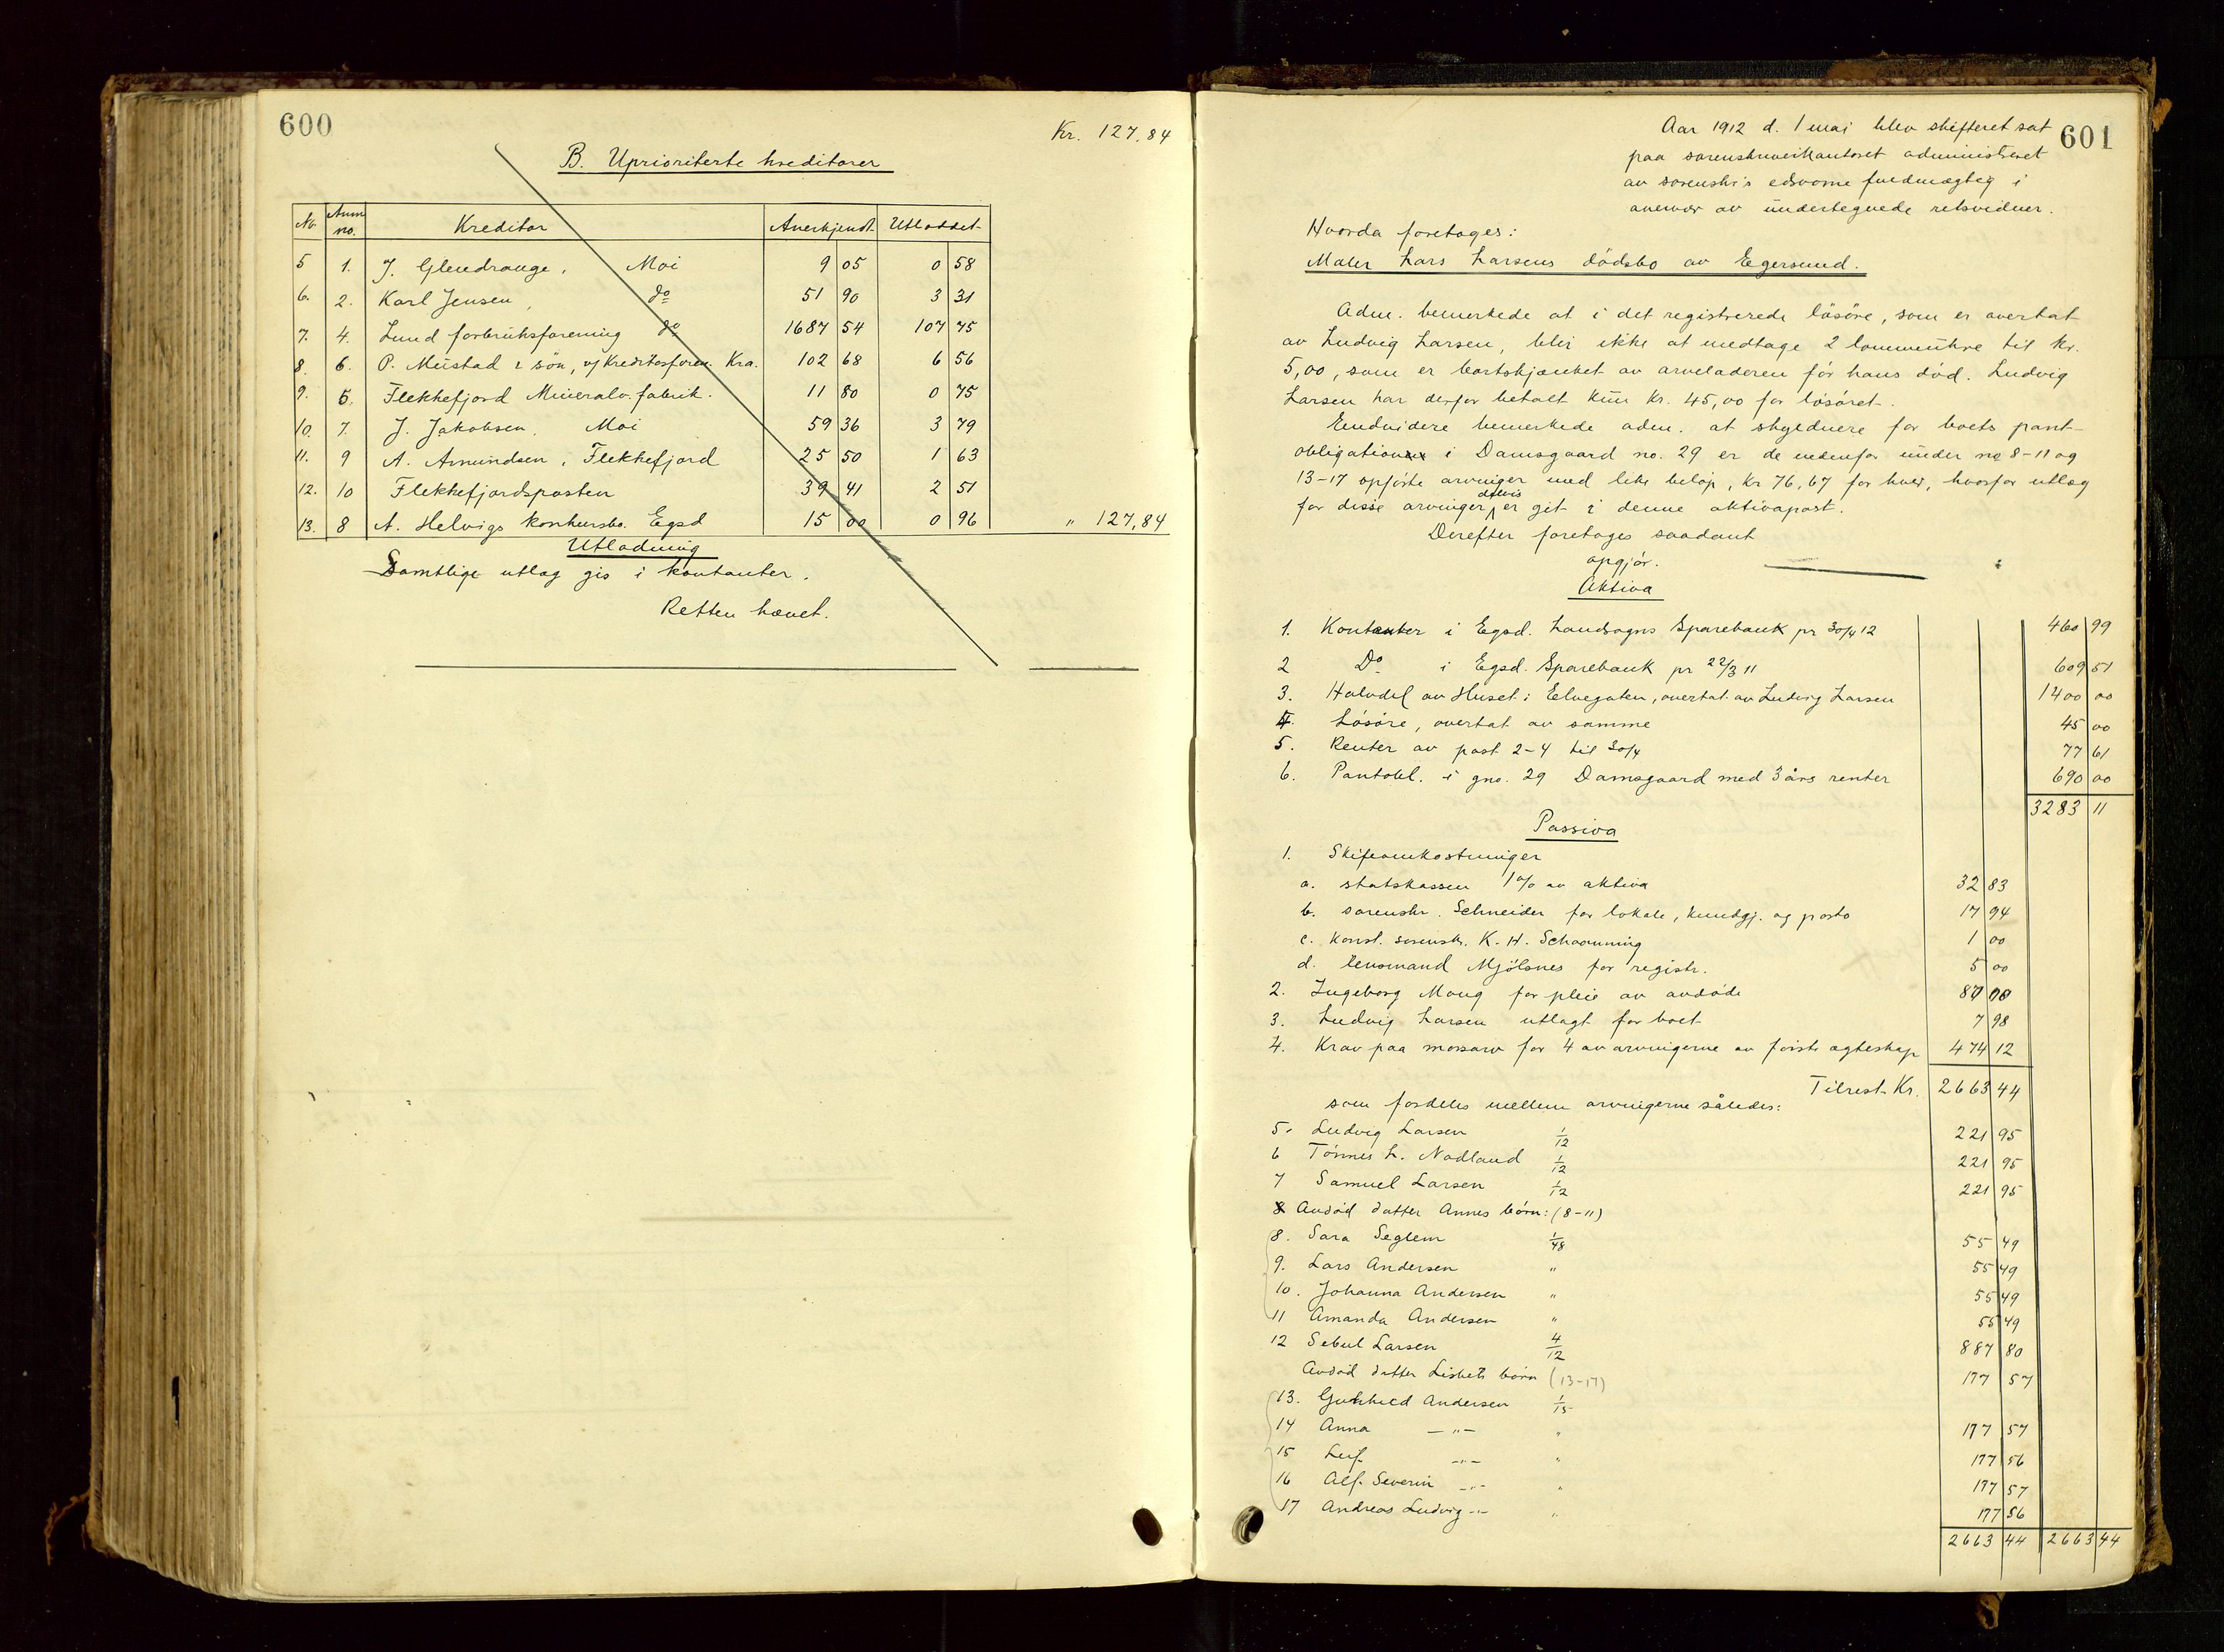 600
Kr. 127,84
B. Uprioriterte kreditorer
No. Anm. no. Kreditor Anerkjendt Utloddet
5 1. J. Glendrange, Moi 9 05 0 58
6. 2. Karl Jensen, do 51 90 3 31
7. 4. Lund forbruksforening do 1687 54 107 75
8. 6. P. Mustad & sön, v/ Kreditorforen. Kra. 102 68 6 56
9. 5. Flekkefjord Mineralv. fabrik. 11 80 0 75
10. 7. J. Jakobsen, Moi 59 36 3 79
11. 9 A. Amundsen, Flekkefjord 25 50 1 63
12. 10 Flekkefjordsposten 39 41 2 51
13. 8 A. Helvigs konkursbo. Egsd 15 00 0 96 " 127,84
Utlodning
Samtlige utlæg gis i kontanter.
Retten hævet.
601
Aar 1912 d. 1 mai blev skifteret sat
paa sorenskriverkontoret administreret
av sorenskr's edsvorne fuldmægtig i
overvær av undertegnede retsvidner.
Hvorda foretoges:
Maler Lars Larsens dödsbo av Egersund.
Adm. bemerkede at i det registrerede lösöre, som er overtat
av Ludvig Larsen, blir ikke at medtage 2 lommeuhre til kr.
5,00, som er bortskjænket av arveladeren för hans död. Ludvig
Larsen har derfor betalt kun kr. 45,00 for lösöret.
Endvidere bemerkede adm. at skyldnere for boets pant-
obligation i Damsgaard no. 29 er de nedenfor under no 8-11 og
13-17 opförte arvinger med like belöp, kr 76,67 for hver, hvorfor utlæg
for disse arvinger delvis er git i denne aktivapost.
Derefter foretoges saadant
opgjör.
Aktiva
1. Kontanter i Egsd. Landsogns Sparebank pr 30/4 12 460 99
2 Do i Egsd. Sparebank pr 22/3 11 609 51
3. Halvdel av Huset i Elvegaten, overtat av Ludvig Larsen 1400 00
4. Lösöre, overtat av samme 45 00
5. Renter av post 2-4 til 30/4 77 61
6. Pantobl. i gno. 29 Damsgaard med 3 års renter 690 00
3283 11
Passiva
1. Skifteomkostninger
a. statskassen 1% av aktiva 32 83
b. sorenskr. Schneider for lokale, kundgj. og porto 17 94
c. konst. sorenskr. K. H. Schaanning 1 00
d. lensmand Mjölsnes for registr. 5 00
2. Ingeborg Moug for pleie av avdöde
3. Ludvig Larsen utlagt for boet 7 98
4. Krav paa morsarv for 4 av arvingerne av förste ægteskap 474 12
Tilrest Kr. 2663 44
som fordeles mellem arvingerne således:
5. Ludvig Larsen 1/12 221 95
6 Tönnes L. Nodland 1/12 221 95
7 Samuel Larsen 1/12 221 95
Avdöd datter Annes börn: (8-11)
8. Sara Seglem 1/48 55 49
9. Lars Andersen " 55 49
10. Johanna Andersen " 55 49
11 Amanda Andersen " 55 49
12 Sebul Larsen 4/12 887 80
Avdöd datter Lisbets börn (13-17) 177 57
13. Gunhild Andersen 1/15
14 Anna -"- " 177 57
15 Leif -"- " 177 56
16 Alf. Severin -"- " 177 57
17 Andreas Ludvig -"- " 177 56
2663 44 2663 44